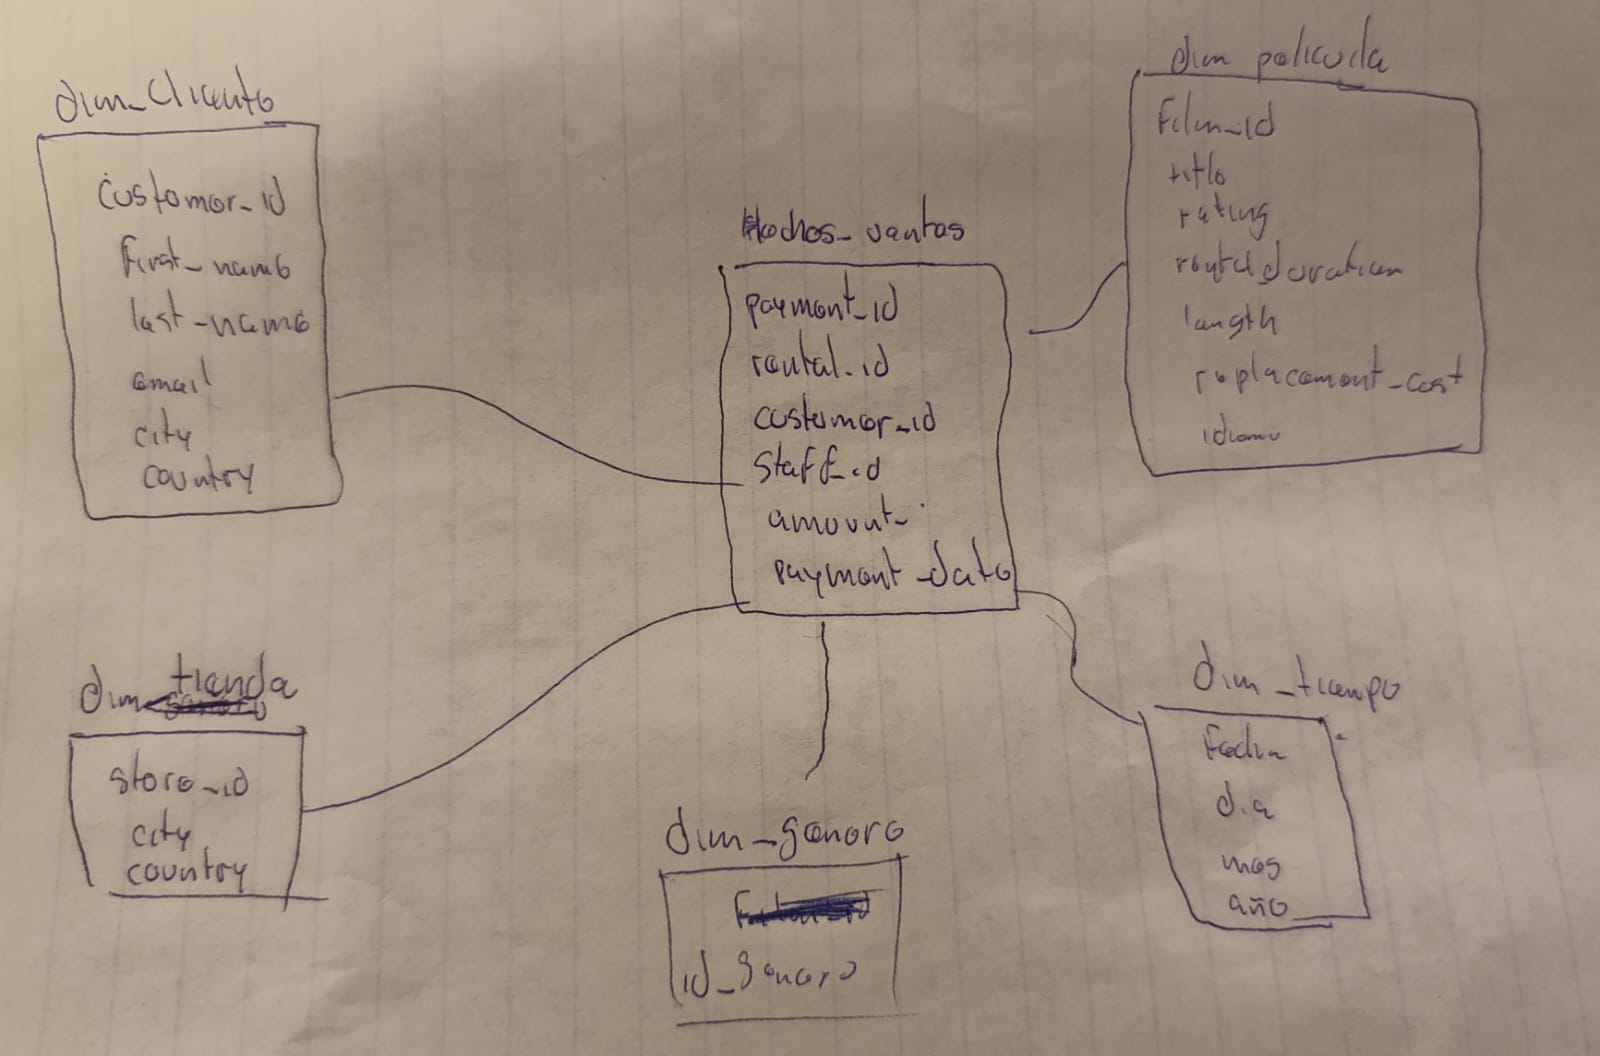 dim_cliente
customer_id
first_name
last_name
email
city
country
Hechos_ventas
payment_id
rental_id
customer_id
staff_id
amount
payment_date
dim pelicula
film_id
title
rating
rental_duration
length
replacement_cost
idioma
dim_tienda
store_id
city
country
dim_genero
id_genero
dim_tiempo
fecha
dia
mes
año